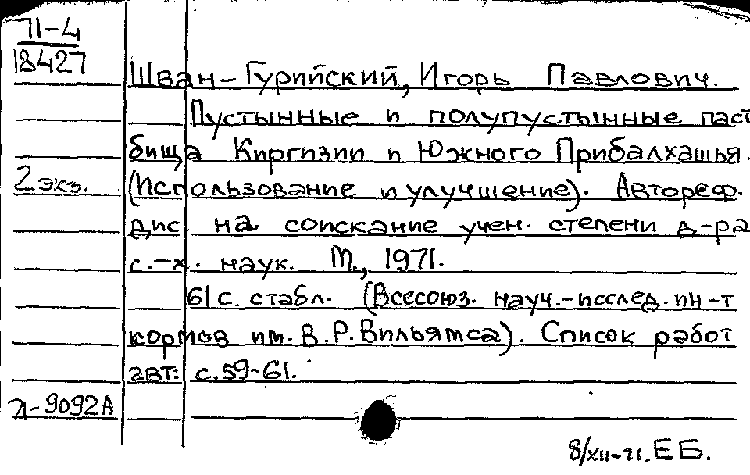 71-4
18427
Шван-Гурийский, Игорь Павлович.
Пустынные и полупустынные паст
бища Киргизии и Южного Прибалхашья.
2 экз.
(Использование и улучшение). Автореф.
дис на соискание учен. степени д-ра
с.-х. наук. М., 1971.
61 с. с табл. (Всесоюз. науч.-исслед. ин-т
кормов им. В.Р. Вильямса). Список работ
авт: с. 59-61.
Л-9092А
8/XII-71. ЕБ.